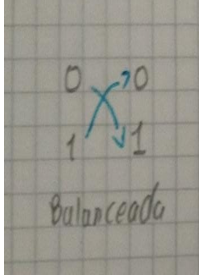 0 0
1 1
Balanceada